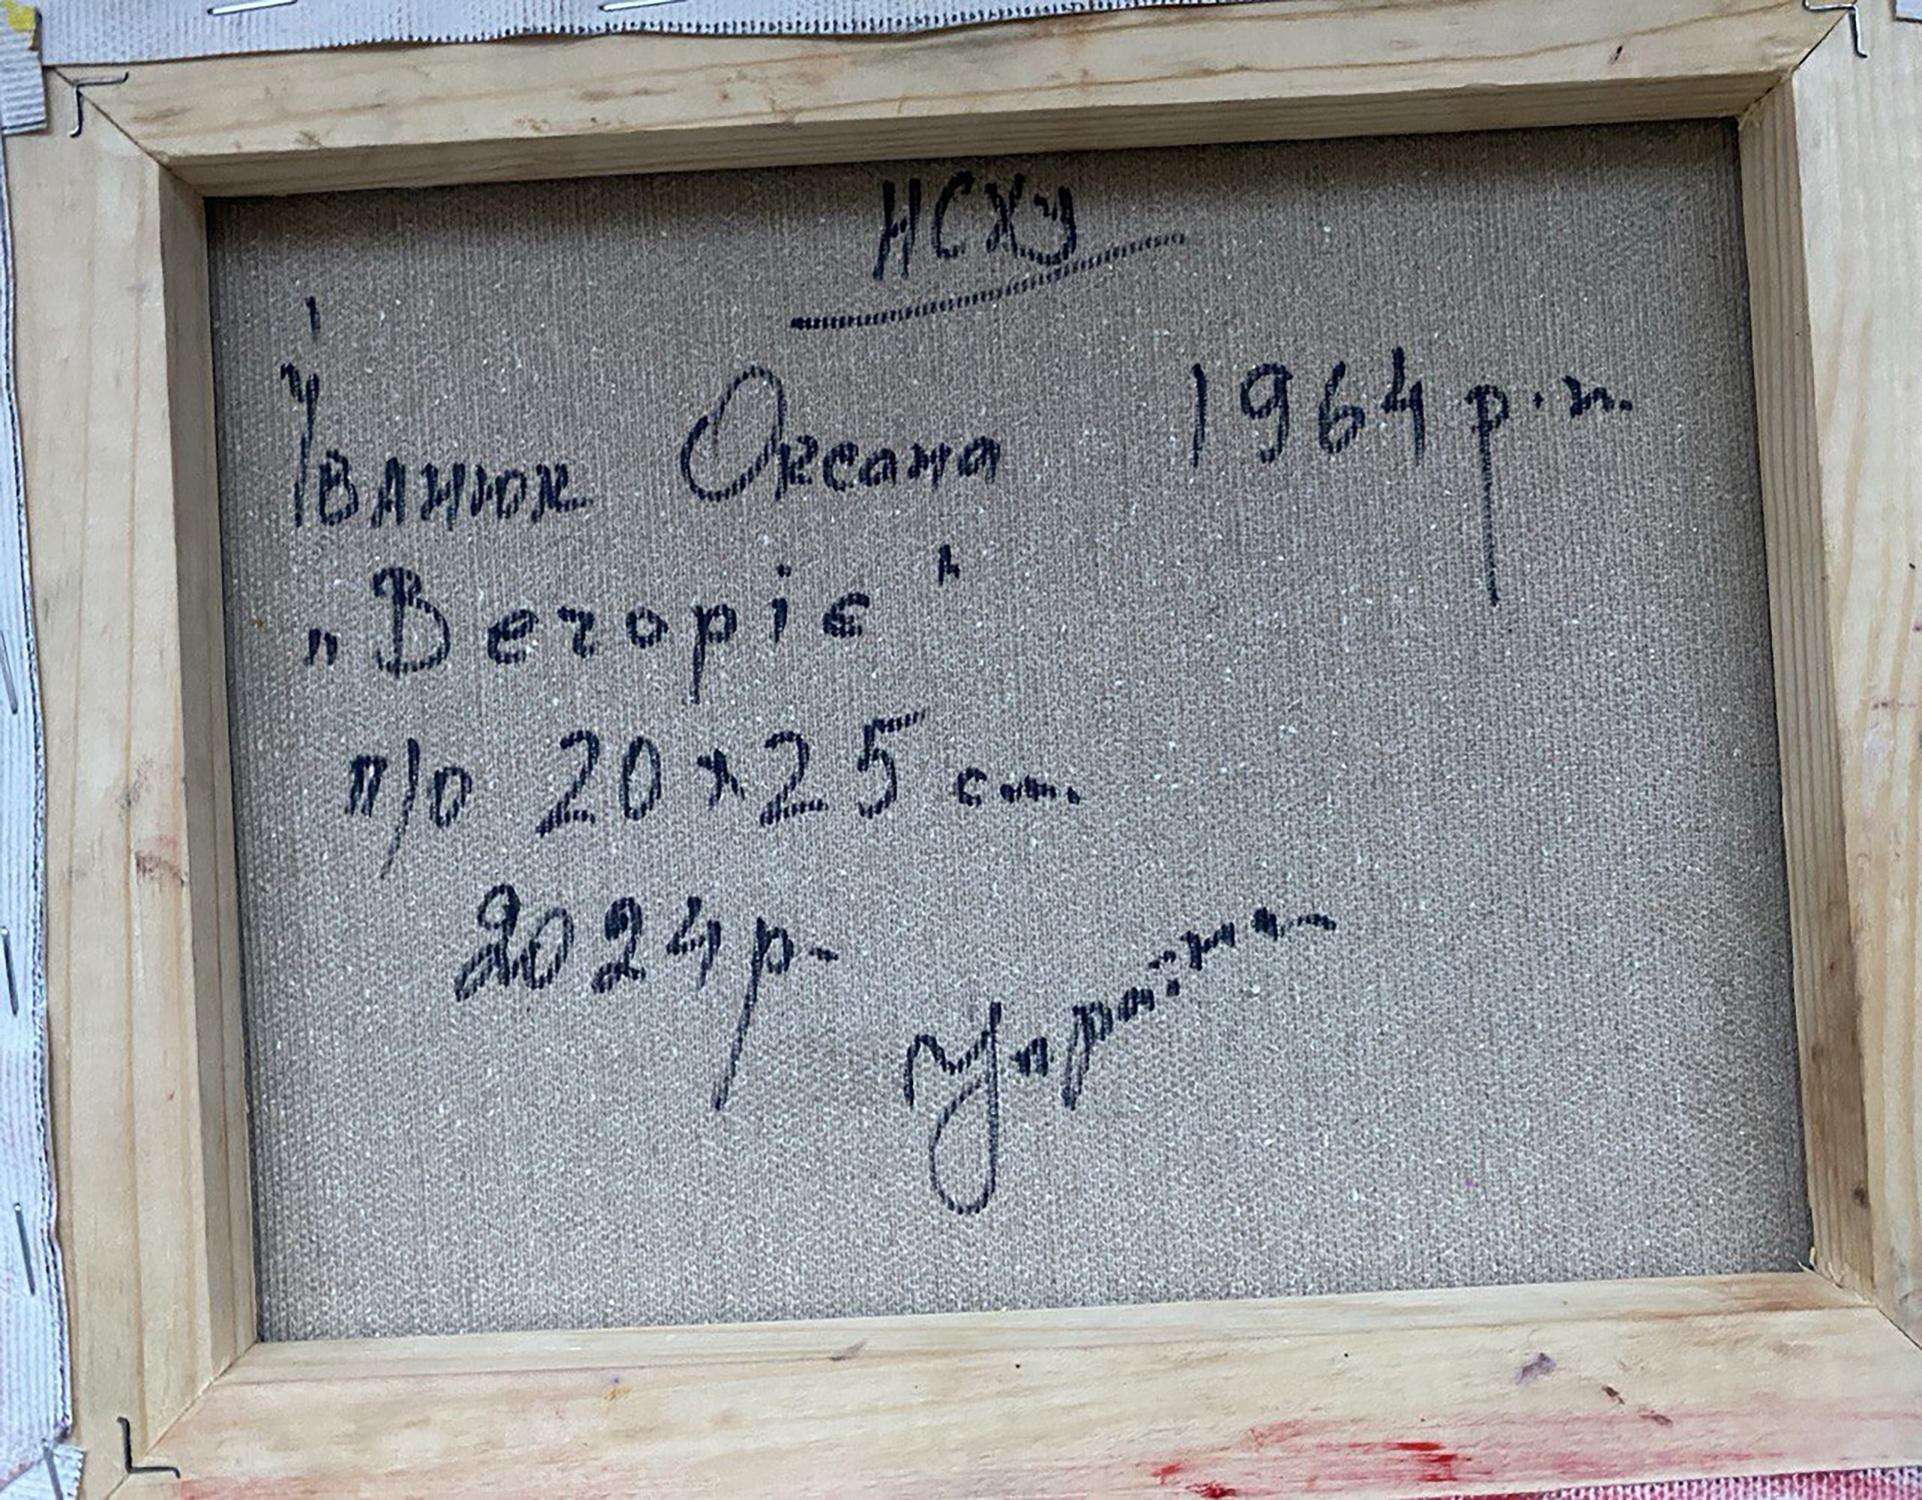 НСХУ
Іванюк Оксана 1964 р.н.
„Вечоріє"
п/о 20х25 см.
2024р.
Україна